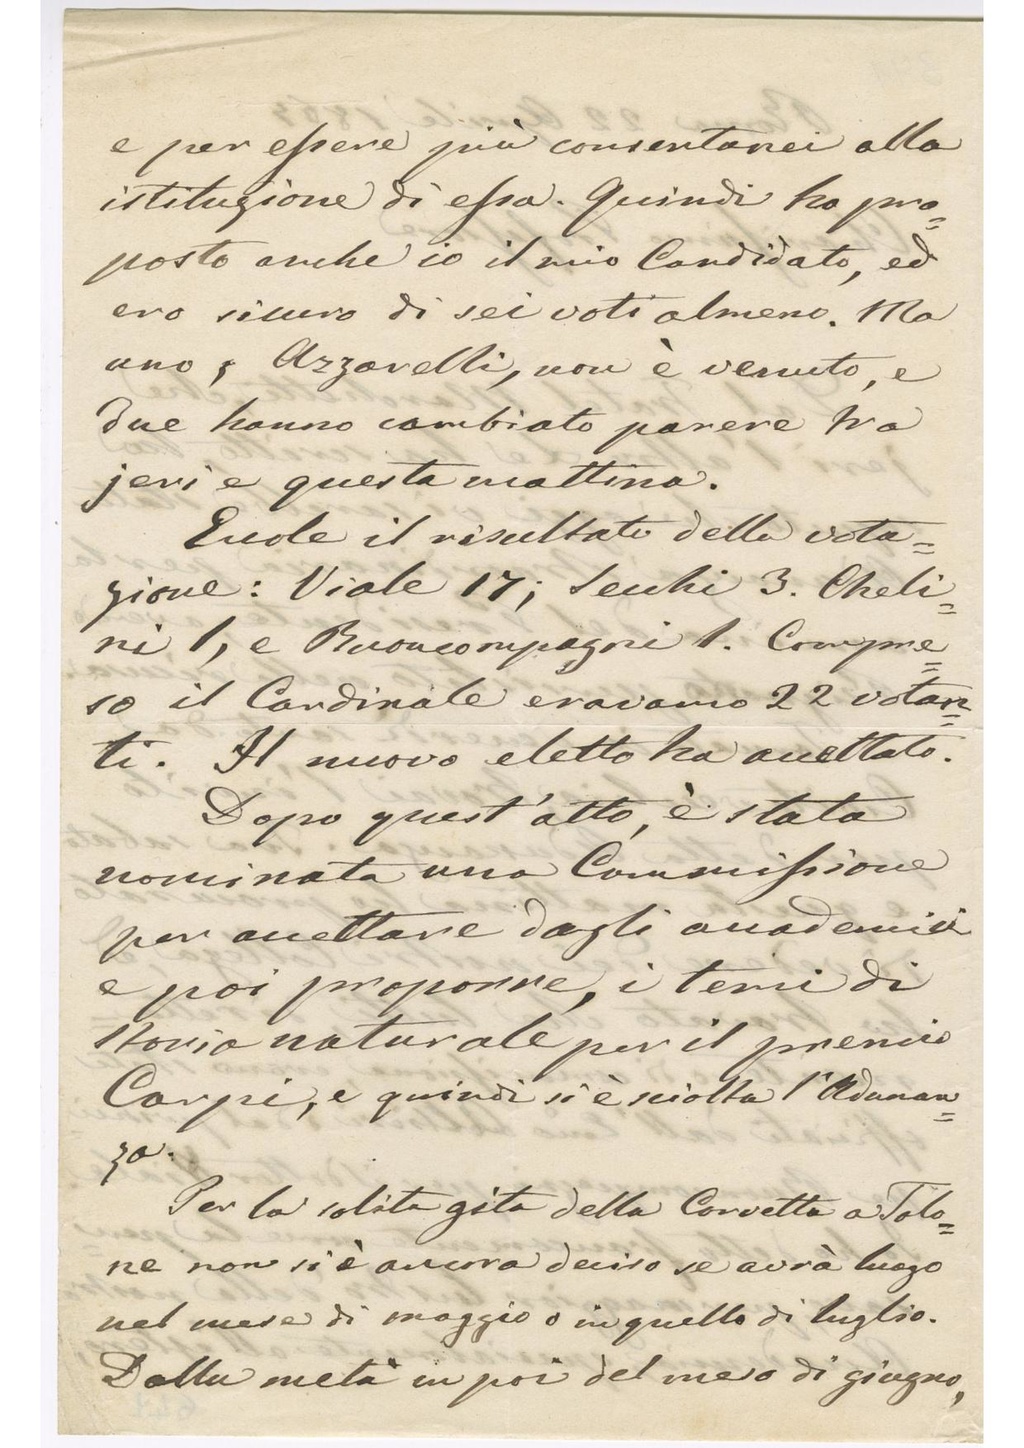 e per essere più consentanei alla
istituzione di essa. Quindi ho pro=
posto anche io il mio Candidato, ed
ero sicuro di sei voti almeno. Ma
uno, Azzarelli, non è venuto, e
due hanno cambiato parere tra
jeri e questa mattina.
Eccole il risultato della vota=
zione: Viale 17; Secchi 3. Cheli=
ni 1, e Buoncompagni 1. Compre=
so il Cardinale eravamo 22 votan=
ti. Il nuovo eletto ha accettato.
Dopo quest'atto, è stata
nominata una Commissione
per accettare dagli accademici
e poi proporre, i temi di
storia naturale per il premio
Carpi, e quindi si è sciolta l'Adunan=
za.
Per la solita gita della Corvetta a Tolo=
ne non si è ancora deciso se avrà luogo
nel mese di maggio o in quello di luglio.
Dalla metà in poi del mese di giugno,